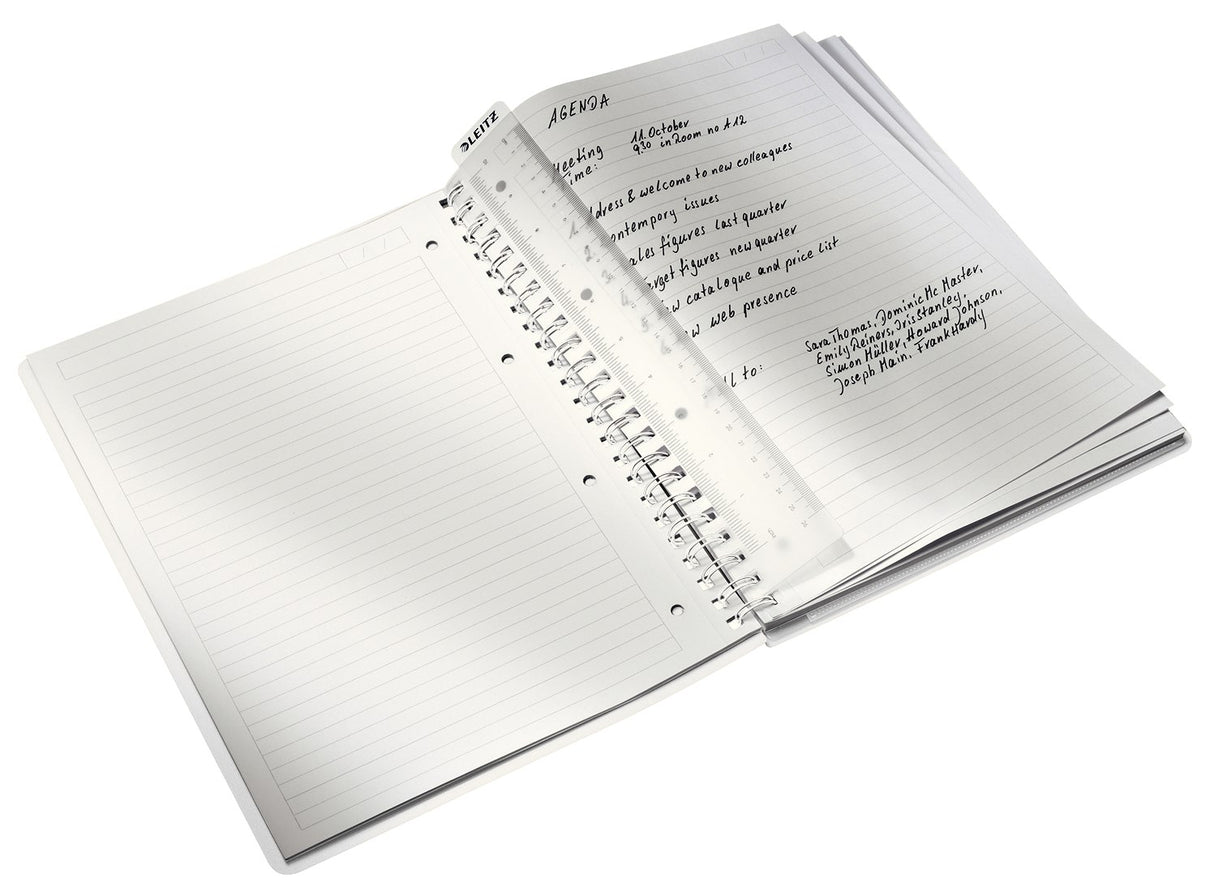 LEITZ
AGENDA
Meeting 11. October
Time: 9.30 in Room no A 12
1. dress & welcome to new colleagues
2. ontempory issues
3. ales figures last quarter
4. arget figures new quarter
5. w catalogue and price list
6. w web presence
ll to: Sara Thomas, Dominic Mc Master,
Emily Reiners, Iris Stanley,
Simon Müller, Howard Johnson,
Joseph Main, Frank Hardy